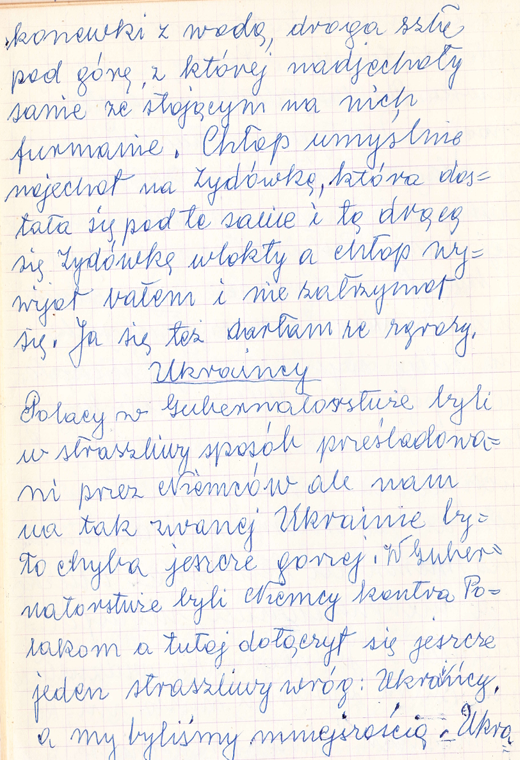 konewki z wodą, droga szła
pod górę, z której nadjechały
sanie ze stojącym na nich
furmanie. Chłop umyślnie
najechał na Żydówkę, która dos=
tała się pod te sanie i tą drącą
się Żydówkę wlokły a chłop wy=
wijał batem i nie zatrzymał
się. Ja się też darłam ze zgrozy.
Ukraincy
Polacy w Gubernatorstwie byli
w straszliwy sposób prześladowa=
ni przez Niemców ale nam
na tak zwanej Ukrainie by=
ło chyba jeszcze gorzej. W Guber=
natorstwie byli Niemcy kontra Po=
lakom a tutaj dołączył się jeszcze
jeden straszliwy wróg: Ukraińcy,
a my byliśmy mniejszością. Ukra=